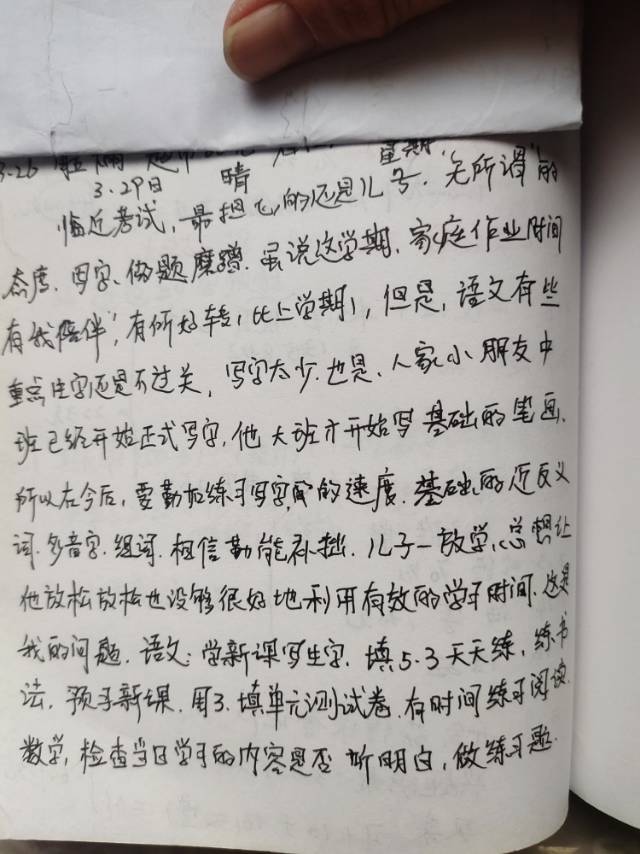 3.26
星期
3.29日 晴
临近考试,最担心的还是儿子.“无所谓”的
态度.写字、做题磨蹭.虽说这学期,家庭作业时间
有我陪伴,有所好转(比上学期),但是,语文有些
重点生字还是不过关,写字太少.也是、人家小朋友中
班已经开始正式写字,他大班才开始写基础的笔画.
所以在今后,要勤加练习写字的速度.基础的近反义
词.多音字.组词.相信勤能补拙.儿子一放学,总想让
他放松放松也没够很好地利用有效的学习时间.这是
我的问题.语文:学新课写生字.填5.3天天练,练书
法,预习新课.周3.填单元测试卷.有时间练习阅读.
数学,检查当日学习的内容是否听明白,做练习题.